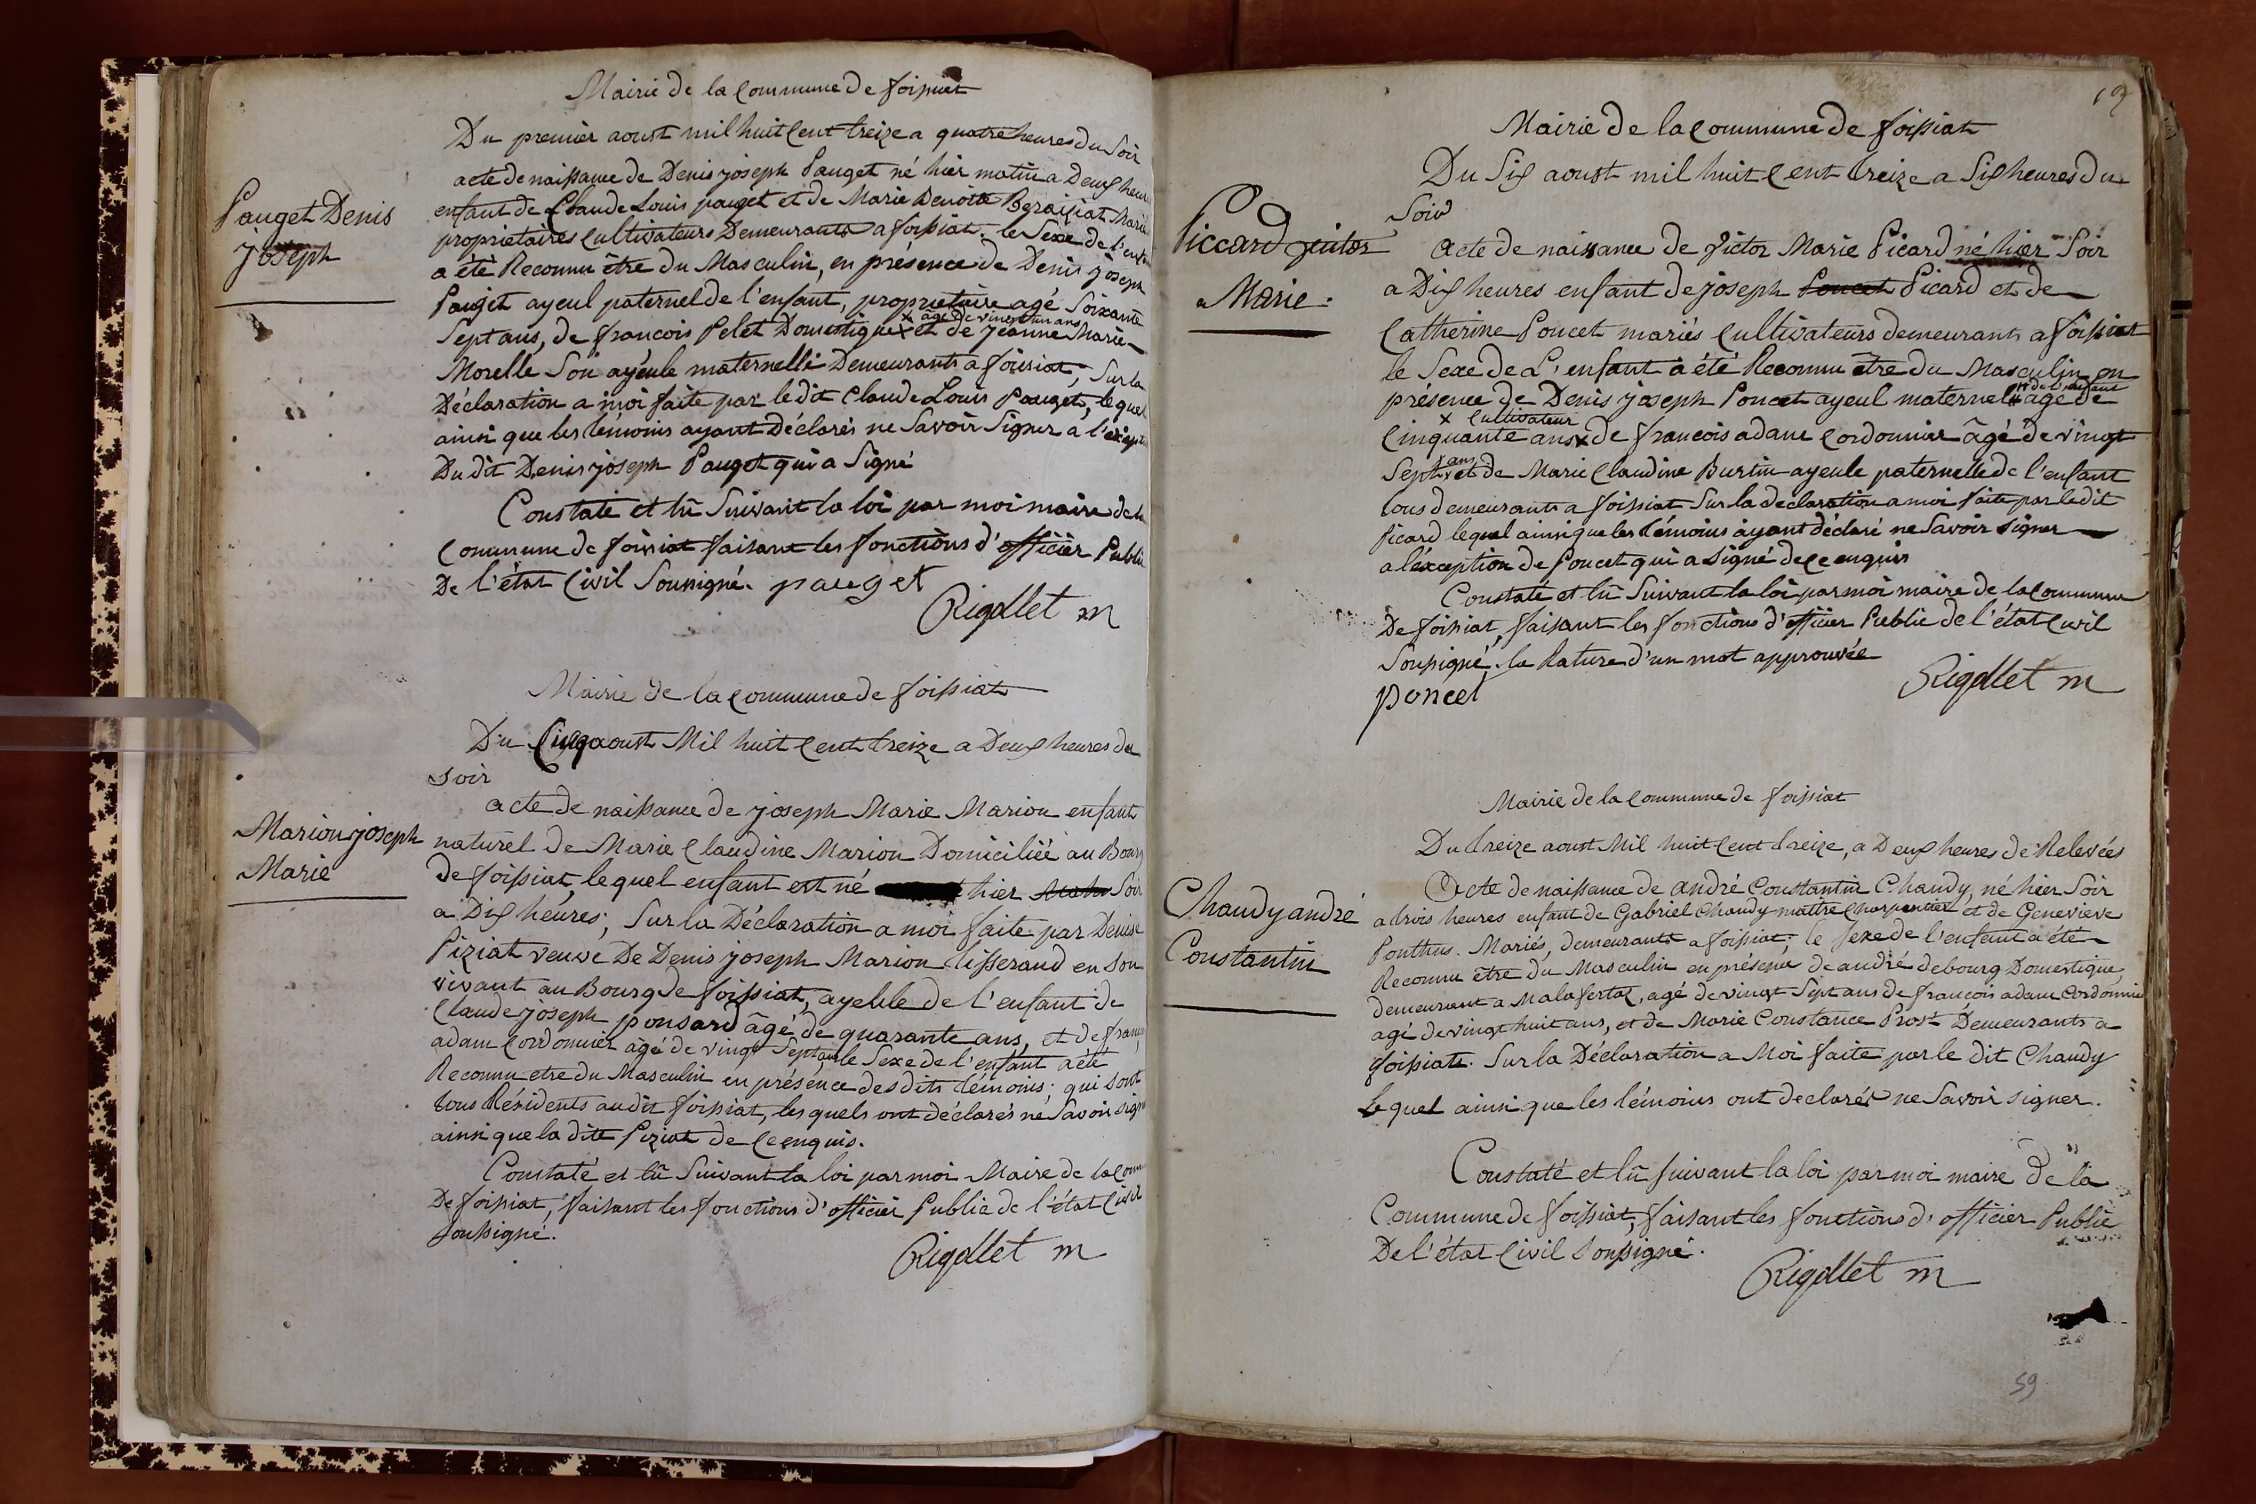 Mairie de la Commune de foissiat
Pauget Denis
joseph
Du premier aoust mil huit Cent treize a quatre heures du Soir
acte de naissance de Denis joseph Pauget né hier matin a Deux heures
enfant de Claude Louis pauget et de Marie Benoite Mariés
proprietaires Cultivateurs Demeurants a foissiat. le Sexe de l'enfant
a été Reconnu être du Masculin, en présence de Denis joseph
Pauget ayeul paternel de l'enfant, propriétaire agé Soixante
Sept ans, de francois Pelet Domestique x et de jeanne Marie
x âgé de vingt un ans
Morelle Son ayeule maternelle Demeurants a foissiat, Sur la
Déclaration a moi faite par le dit Claude Louis Pauget, lequel
ainsi que les témoins ayant Déclarés ne Savoir Signer a l'exception
Du dit Denis joseph Pauget qui a Signé
Constaté et lû Suivant la loi par moi maire de la
Commune de foissiat faisant les fonctions d'officier Public
De l'état Civil Soussigné. pauget
Rigollet m
Mairie de la Commune de foissiat
Marion joseph
Marie
Du Cinq aoust Mil huit Cent treize a Deux heures du
Soir
acte de naissance de joseph Marie Marion enfant
naturel de Marie Claudine Marion Domiciliée au Bourg
de foissiat, lequel enfant est né hier Soir
a Dix heures; Sur la Déclaration a moi faite par Denise
Piziat veuve De Denis joseph Marion tisserand en Son
vivant au Bourg de foissiat, ayelle de l'enfant de
Claude joseph ponsard âgé de quarante ans, et de françois
adam Cordonnier agé de vingt Sept ans le Sexe de l'enfant a été
Reconnu etre du Masculin en présence des dits témoins; qui sont
tous Résidents au dit foissiat, les quels ont déclarés ne Savoir signer
ainsi que la ditte Piziat de Ce enquis.
Constaté et lû Suivant la loi par moi Maire de la Commune
De foissiat, faisant les fonctions d'officier Public de l'état Civil
Soussigné.
Rigollet m
19
Mairie de la Commune de foissiat
Piccard Victor
Marie.
Du Six aoust mil huit Cent treize a Six heures du
Soir
acte de naissance de Victor Marie Picard né hier Soir
a Dix heures enfant de joseph Poncet Picard et de
Catherine Poncet mariés Cultivateurs demeurants a foissiat
le Sexe de L'enfant a été Reconnu être du Masculin en
présence de Denis joseph Poncet ayeul maternel # agé de
# de l'enfant
x Cultivateur
Cinquante ans x de francois adam Cordonnier âgé de vingt
Sept ans et de Marie Claudine Burtin ayeule paternelle de l'enfant
tous demeurants a foissiat Sur la déclaration a moi faite par le dit
Picard lequel ainsi que les témoins ayant déclaré ne Savoir signer
a l'éxception de Poncet qui a Signé de Ce enquis
Constaté et lû Suivant la loi par moi maire de la Commune
De foissiat, faisant les fonctions d'officier Public de l'état Civil
Soussigné. la Rature d'un mot approuvée
poncet
Rigollet m
Mairie de la Commune de foissiat
Chaudy andré
Constantin
Du treize aoust Mil huit Cent treize, a Deux heures de Relevées
Acte de naissance de andré Constantin Chaudy, né hier Soir
a trois heures enfant de Gabriel Chaudy maître Charpentier et de Genevieve
Ponthus. Mariés, demeurants a foissiat; le Sexe de l'enfant a été
Reconnu être du Masculin en présence de andré debourg Domestique
demeurant a Malafertaz, agé de vingt Sept ans de francois adam Cordonnier
agé de vingt huit ans, et de Marie Constance Prost Demeurants a
foissiat. Sur la Déclaration a Moi faite par le dit Chaudy
lequel ainsi que les témoins ont declarés ne Savoir signer.
Constaté et lû Suivant la loi par moi maire De la
Commune de foissiat, faisant les fonctions d'officier Public
De l'état Civil Soussigné.
Rigollet m
59